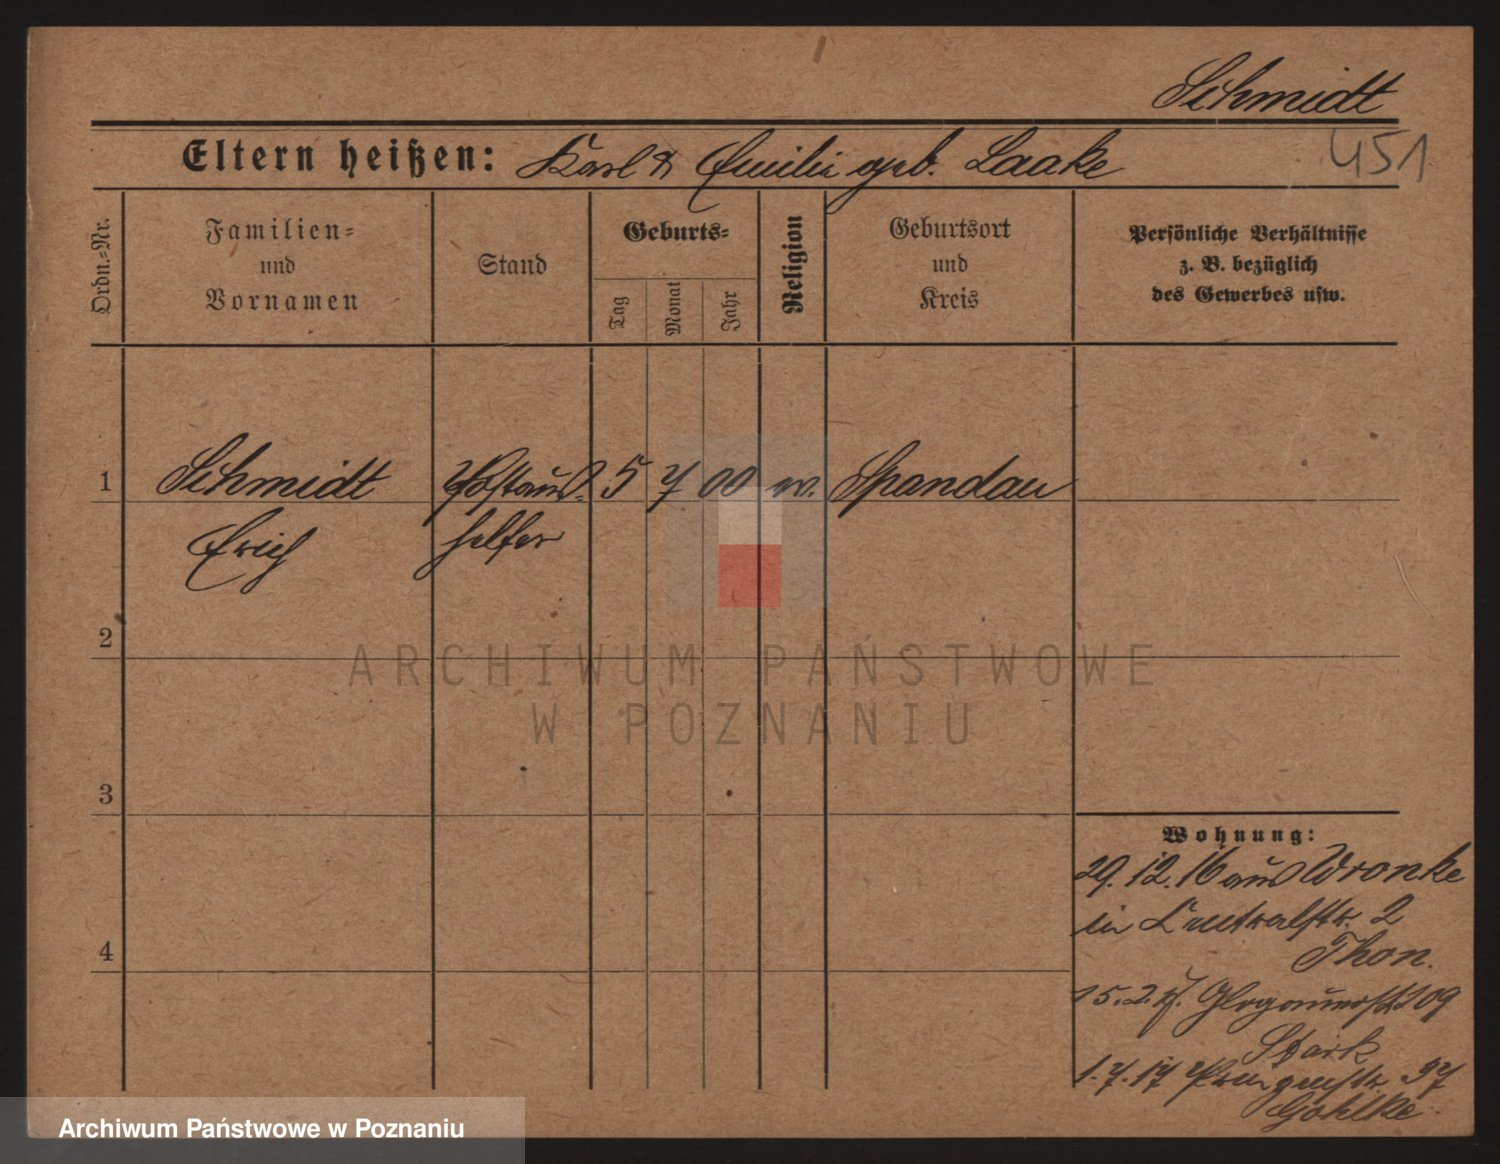 Schmidt
451
Eltern heißen: Karl & Emilie geb. Laake
Ordn.=Nr.
Familien=
und
Vornamen
Stand
Geburts=
Tag
Monat
Jahr
Religion
Geburtsort
und
Kreis
Persönliche Verhältnisse
z. B. bezüglich
des Gewerbes usw.
1 Schmidt Postaus= 5 7 00 ev. Spandau
Erich helfer
2
3
4
Wohnung:
29.12.16 aus Wronke
in Centralstr. 2
Thon.
15.2.17. Glogauerstr 109
Stark
1.7.17 97
Gohlke
ARCHIWUM PAŃSTWOWE
W POZNANIU
Archiwum Państwowe w Poznaniu